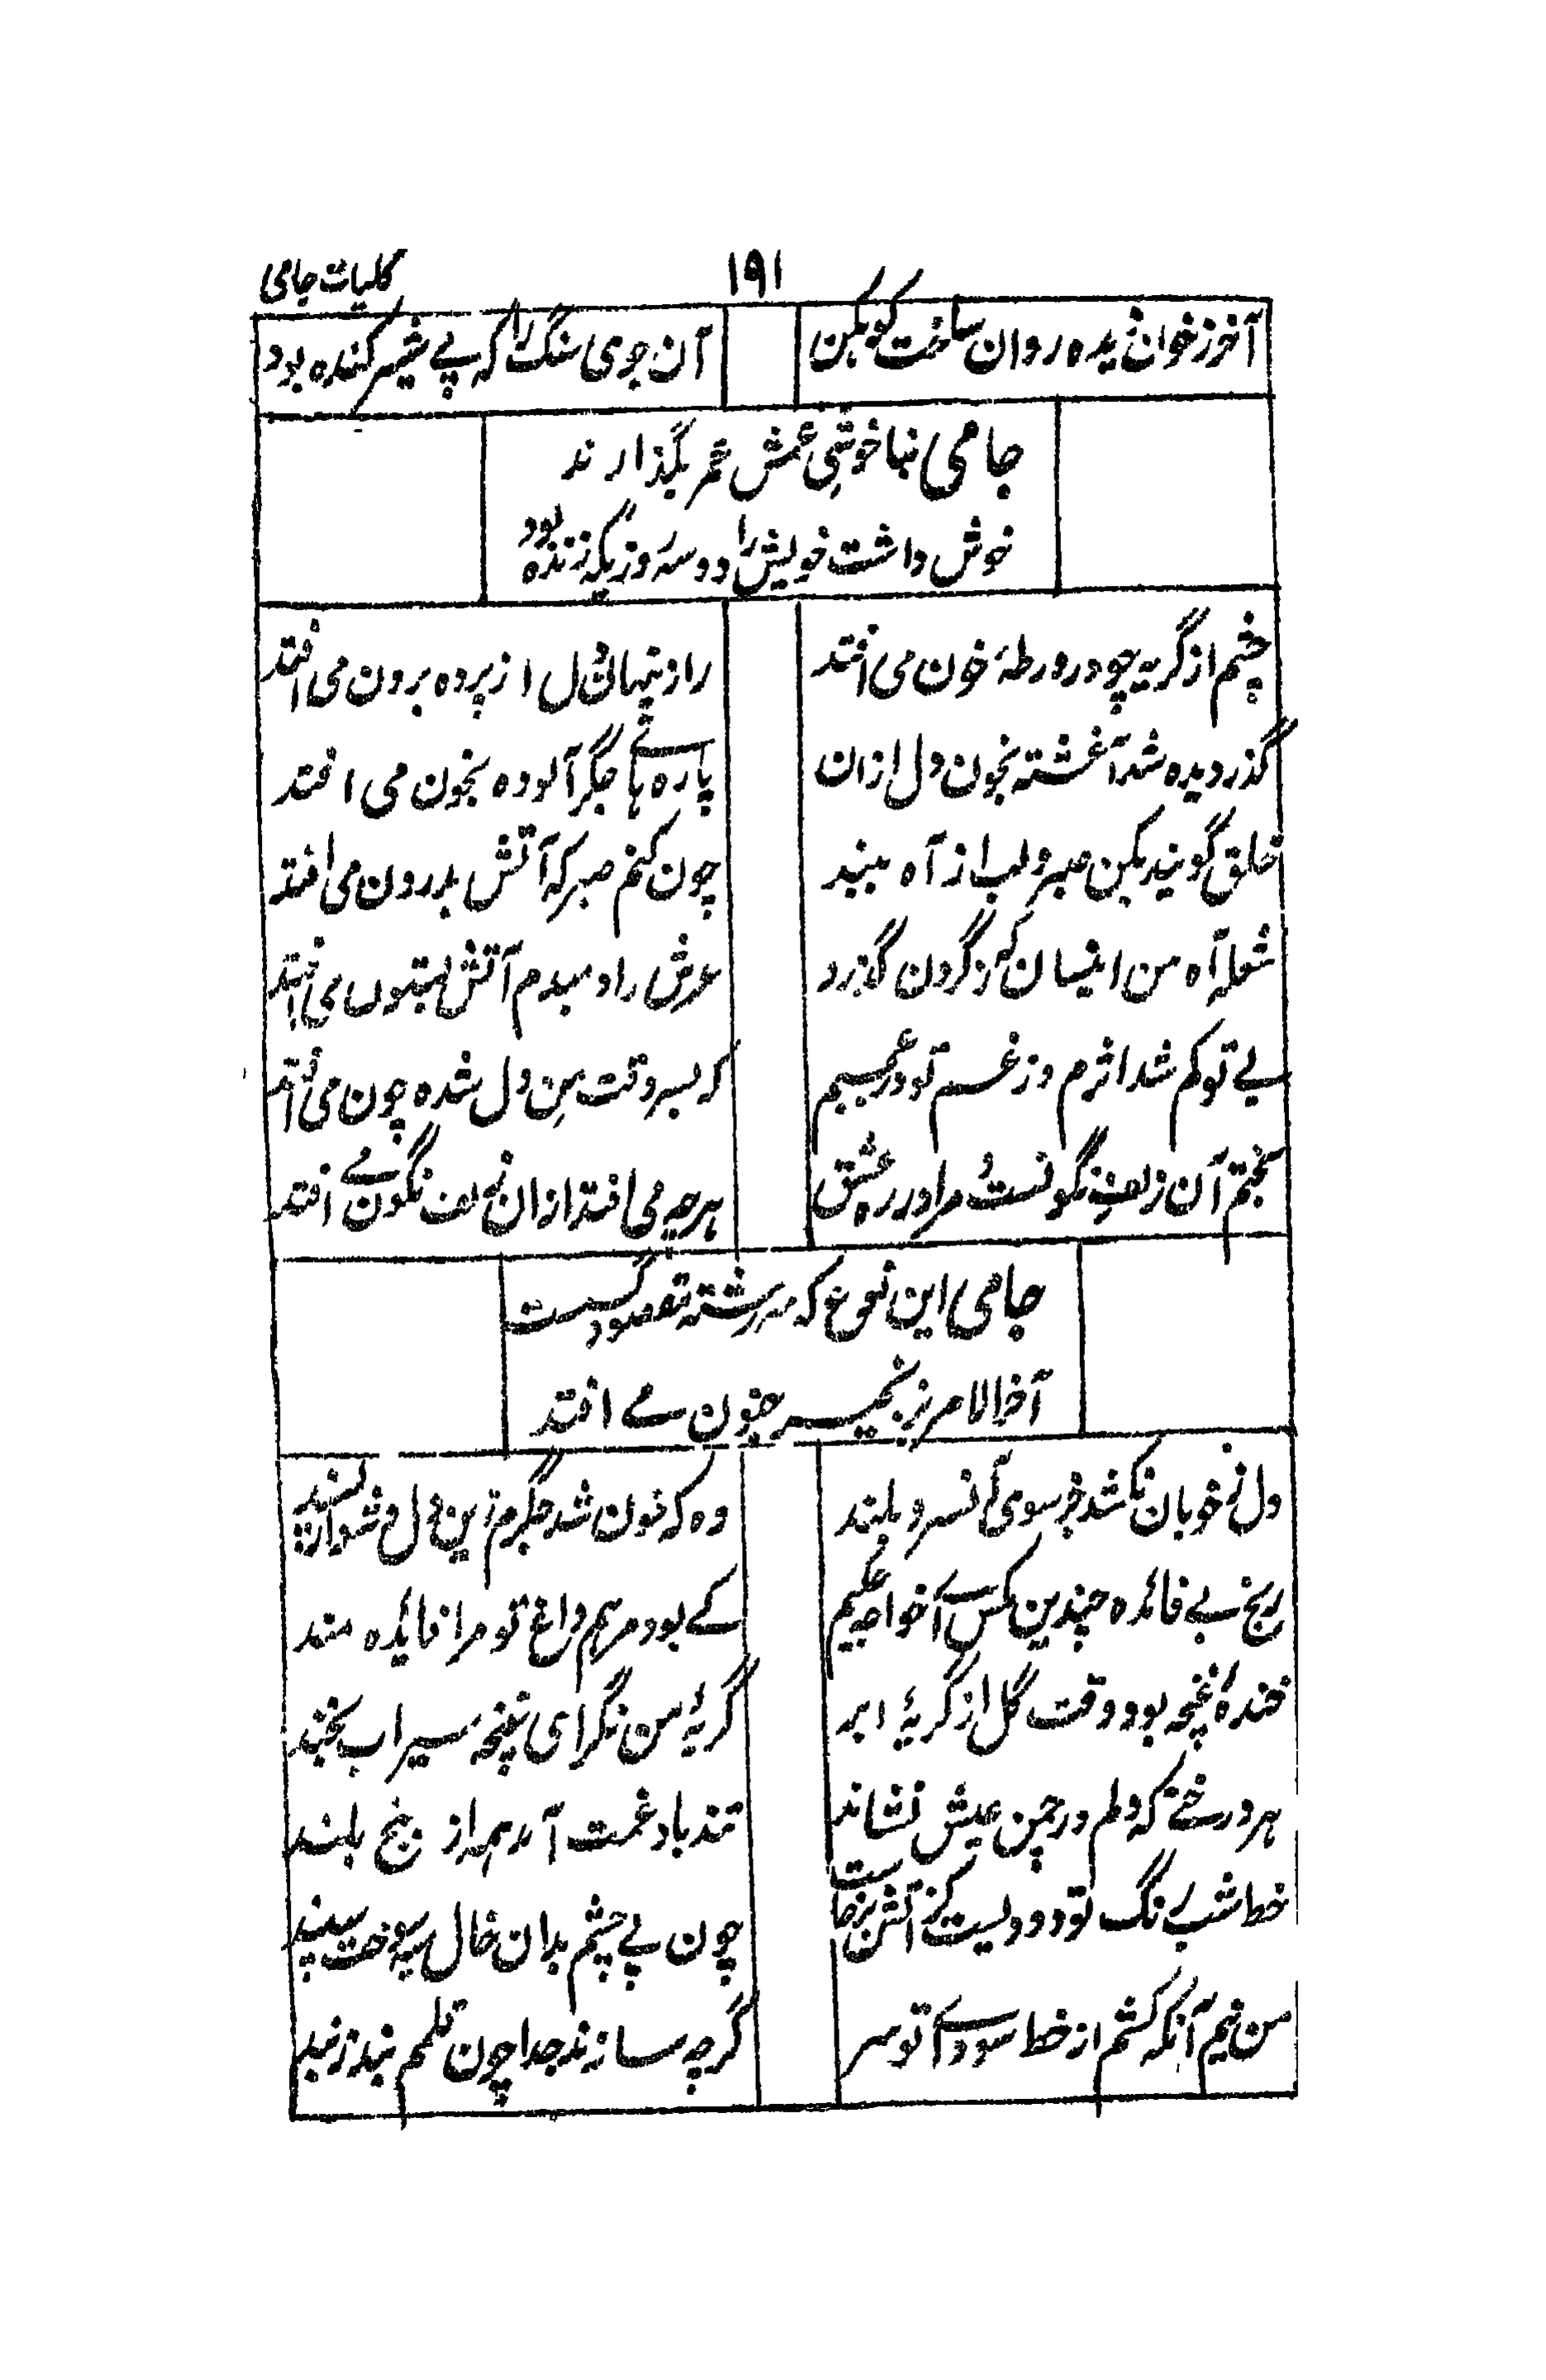 ۱۹۱
کلیات جامی
آخر ز خون دیده روان ساخت کوهکن
آن جوی سنگ را که پے شیر کنده بود
جامی بناخوشی غمش عمر بگذارند
خوش داشت خویش را دو سه روزیکه زنده بود
چشم از گریه چو در ورطهٔ خون می افتد
راز پنهانی دل از پرده برون می افتد
گذر دیده شد آغشته بخون دل ازان
پاره هاے جگر آلوده بخون می افتد
خلق گویند بکن صبر و لب از آه ببند
چون کنم صبر که آتش بدرون می افتد
شعله آه من اینسان که ز گردون گذرد
عرش را دمبدم آتش بستون می افتد
بے تو گم شد اثرم وز غم تو در عجبم
که بسر وقت من دل شده چون می افتد
بختم آن زلف نگونست مرا در ره عشق
هرچه می افتد ازان زلف نگون مے افتد
جامی این نوع که سررشته مقصود گسست
آخر الامر بزنجیر جنون مے افتد
دل ز خوبان نکشد جز سوی آنسرو بلند
وه که خون شد جگرم زین دل دشوار پسند
رنج بے فائده چندین مکش اے خواجه حکیم
کے بود مرهم داغ تو مرا فائده مند
خندهٔ غنچه بود وقت گل از گریهٔ ابر
گریهٔ من نگر ای غنچهٔ سیراب بخند
هر درختے که دلم در چمن عیش نشاند
تند باد غمت آمد همه از بیخ بکند
خط شب رنگ تو دودیست کز آتش برخاست
چون پے چشم بدان خال سیه سوخت سپند
من نیم آنکه کشم از خط سوداے تو سر
گرچه سازند جدا چون قلمم بند ز بند